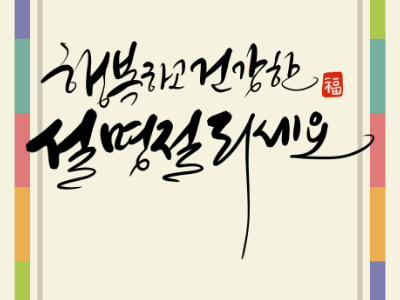 행복하고 건강한
福
설명절 되세요